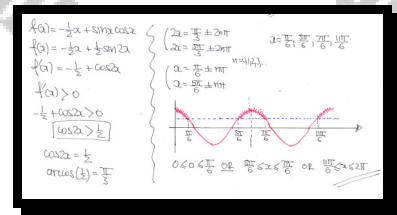 f(x) = -½x + sinxcosx
f(x) = -½x + ½sin2x
f'(x) = -½ + cos2x
f'(x) > 0
-½ + cos2x > 0
cos2x > ½
cos2x = ½
arccos(½) = π/3
2x = π/3 ± 2nπ
2x = 5π/3 ± 2nπ
n=0,1,2,3...
x = π/6 ± nπ
x = 5π/6 ± nπ
x = π/6, 5π/6, 7π/6, 11π/6
π/6 5π/6 7π/6 11π/6
0 ≤ x ≤ π/6 OR 5π/6 ≤ x ≤ 7π/6 OR 11π/6 ≤ x ≤ 2π